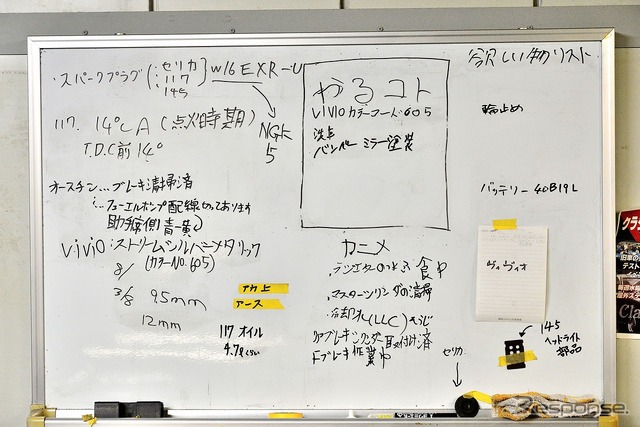 ・スパークプラグ
セリカ
117
145
W16EXR-U
NGK
5
117. 14°C A (点火時期)
T.D.C前 14°
オースチン…ブレーキ清掃済
フューエルポンプ配線切ってあります
助手席側 青-黄
ViViO ストリームシルバーメタリック
(カラーNo.605)
8/
3/8 95mm
12mm
アカ 上
アース
117 オイル
4.7ℓくらい
やるコト
ViViO カラーコード 605
洗車
バンパー ミラー塗装
カニメ
マスターシリンダの清掃
冷却水(LLC)
Rブレーキシリンダー取り付け済
Fブレーキ作業中
セリカ
欲しい物リスト
輪止め
バッテリー 40B19L
ヴィヴィオ
145
ヘッドライト
部品
クラ
旧車の
テスト
Cla
Response.